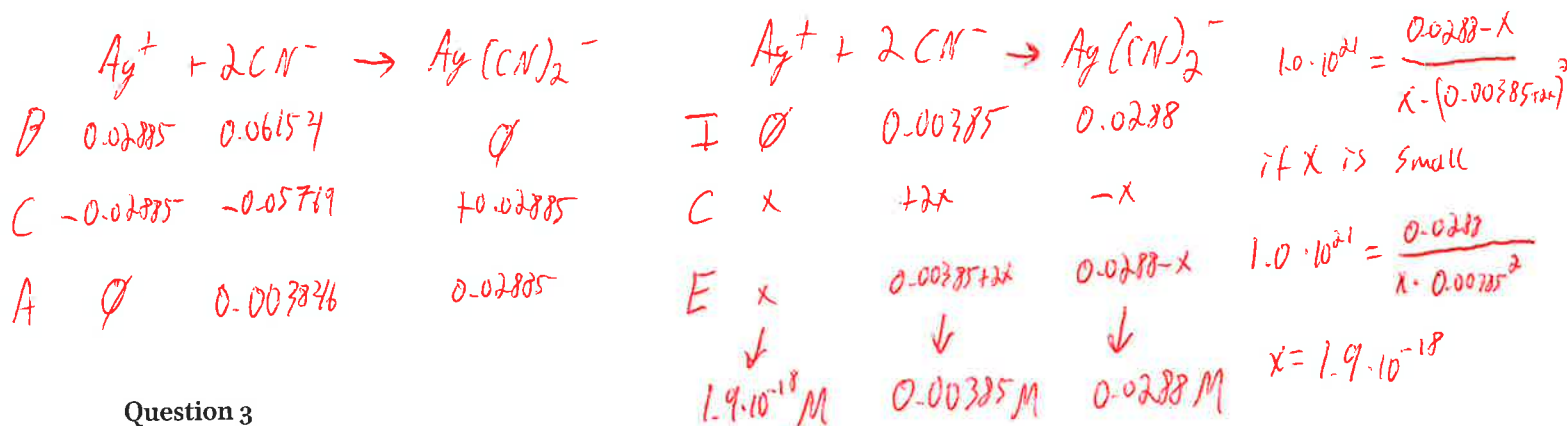 Ag⁺ + 2CN⁻ → Ag(CN)₂⁻
B 0.02885 0.06154 Ø
C -0.02885 -0.05769 +0.02885
A Ø 0.003846 0.02885
Ag⁺ + 2CN⁻ → Ag(CN)₂⁻
I Ø 0.00385 0.0288
C x +2x -x
E x 0.00385+2x 0.0288-x
↓ ↓ ↓
1.9·10⁻¹⁸ M 0.00385 M 0.0288 M
1.0·10²¹ = 0.0288-x / x·(0.00385+2x)²
if x is small
1.0·10²¹ = 0.0288 / x·0.00385²
x = 1.9·10⁻¹⁸
Question 3